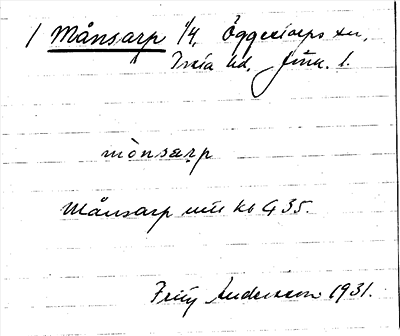 1 Månsarp 1/4, Öggestorps sn,
Tveta hd, Jönk. l.
mònsarp
Månsarp mtl kb G 35.
Fritz Andersson 1931.